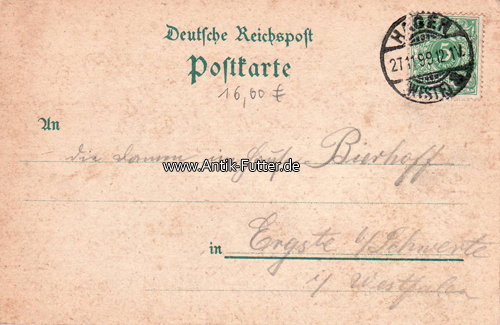 Deutsche Reichspost
Postkarte
HAGEN
27.11.99.12-1V.
(WESTF.)
5
16,00 €
An
die Damen
www.Antik-Futter.de
Bierhoff
in
Ergste b/Schwerte
i/ Westfalen